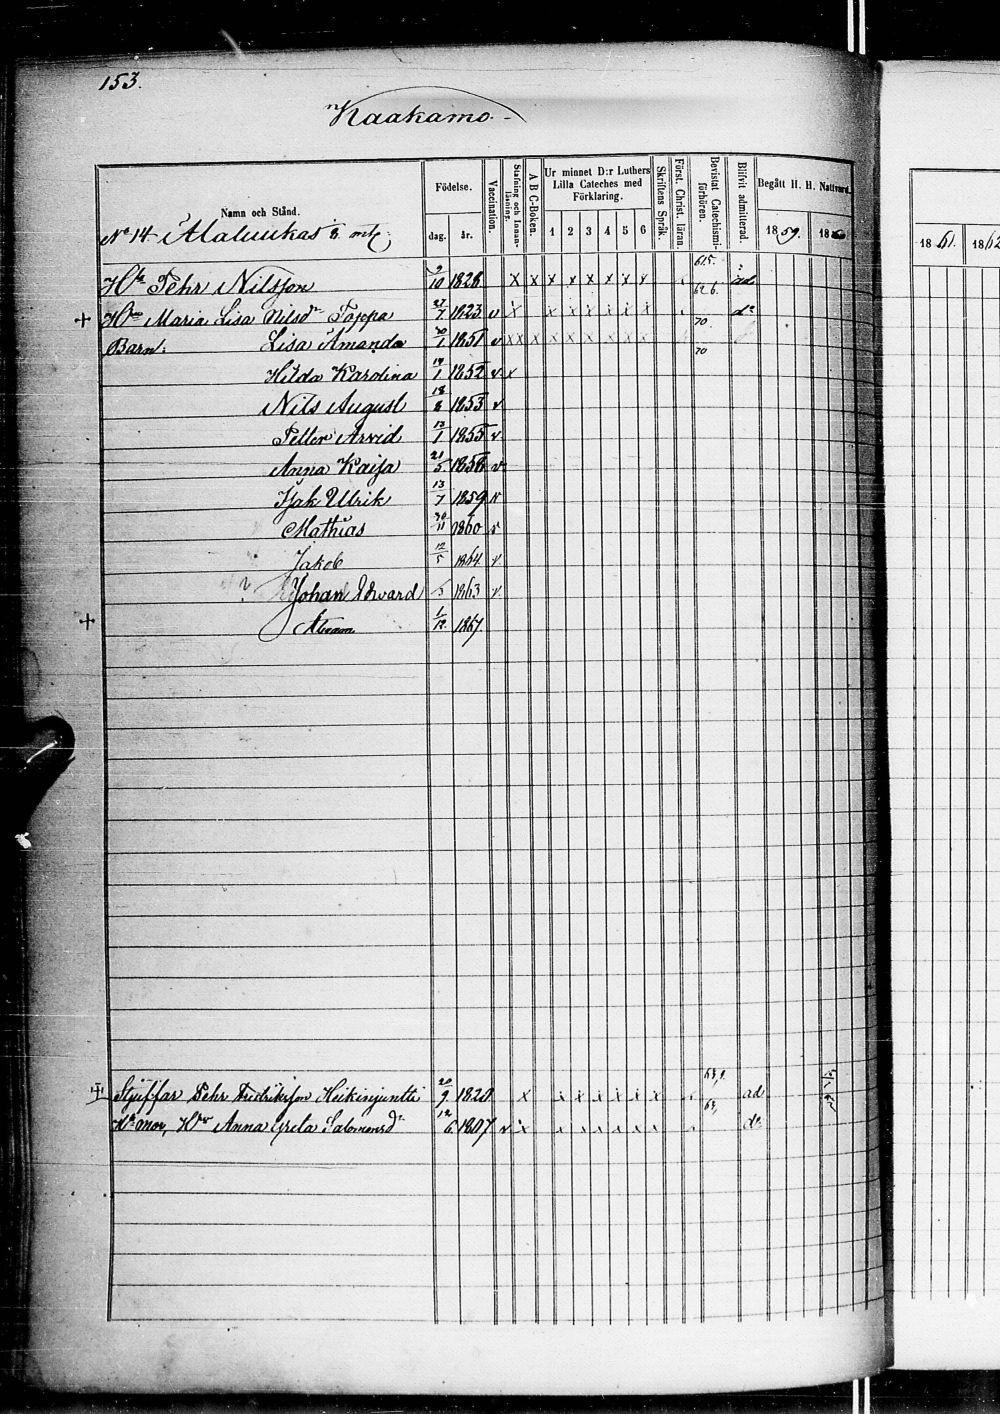 153.
Kaakamo.
Namn och Stånd.
Födelse.
dag.
år.
Vaccination.
Stafning och Innan-läsning.
A B C-Boken.
Ur minnet D:r Luthers Lilla Cateches med Förklaring.
1 2 3 4 5 6
Skriftens Språk.
Först. Christ. läran.
Bevistat Catechismi-förhören.
Blifvit admitterad.
Begått H. H. Nattvard.
1859. 18
1861. 1862
No 14 Alaluukas
Pehr Nilsson 9/10 1828 x x x x x x x x 615. ad
+ Maria Lisa Nilsdr Toppa 27/7 1823 v x x x x x x x 626. do
Barn: Lisa Amanda 20/1 1851 v x x x x x x x x x 70
Hilda Karolina 14/1 1852 v x 70
Nils August 18/8 1853 v
Petter Arvid 13/1 1855 v
Anna Kaisa 21/5 1858 v
Isak Ulrik 13/7 1859 v
Mathias 30/11 1860 v
Jakob 12/5 1864 v
Johan Edvard 5 1863 v
+ Abram 1/12 1867.
Styffar Pehr Fredriksson Heikinjuntti 20/9 1820 x x x x x x x 63, ad
mor, Anna Greta Salomonsdr 12/6 1807 v x x x x x x x 63, do